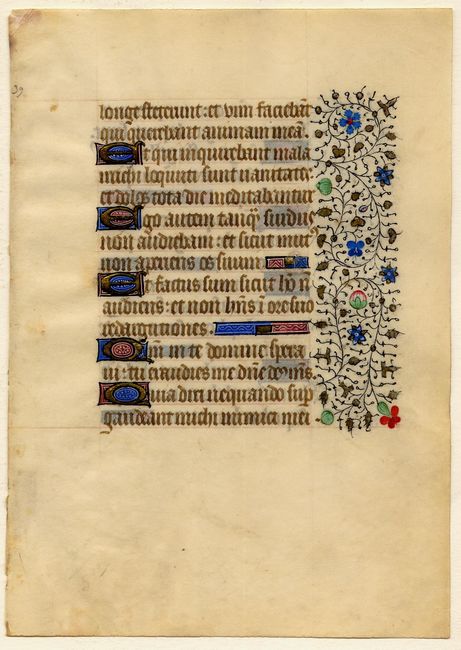 39
longe steterunt : et vim faciebāt
qui querebant animam meā .
Et qui inquirebant mala
michi locuti sunt vanitates :
et dolos tota die meditabantur
Ego autem tanq̄ surdus
non audiebam : et sicut mutꝰ
non aperiens os suum
Et factus sum sicut hō nō
audiens : et non hn̄s ī ore suo
redargutiones .
Qm̄ in te domine spera
ui : tu exaudies me dn̄e ds̄ ms̄ .
Quia dixi nequando sup̄
gaudeant michi inimici mei .